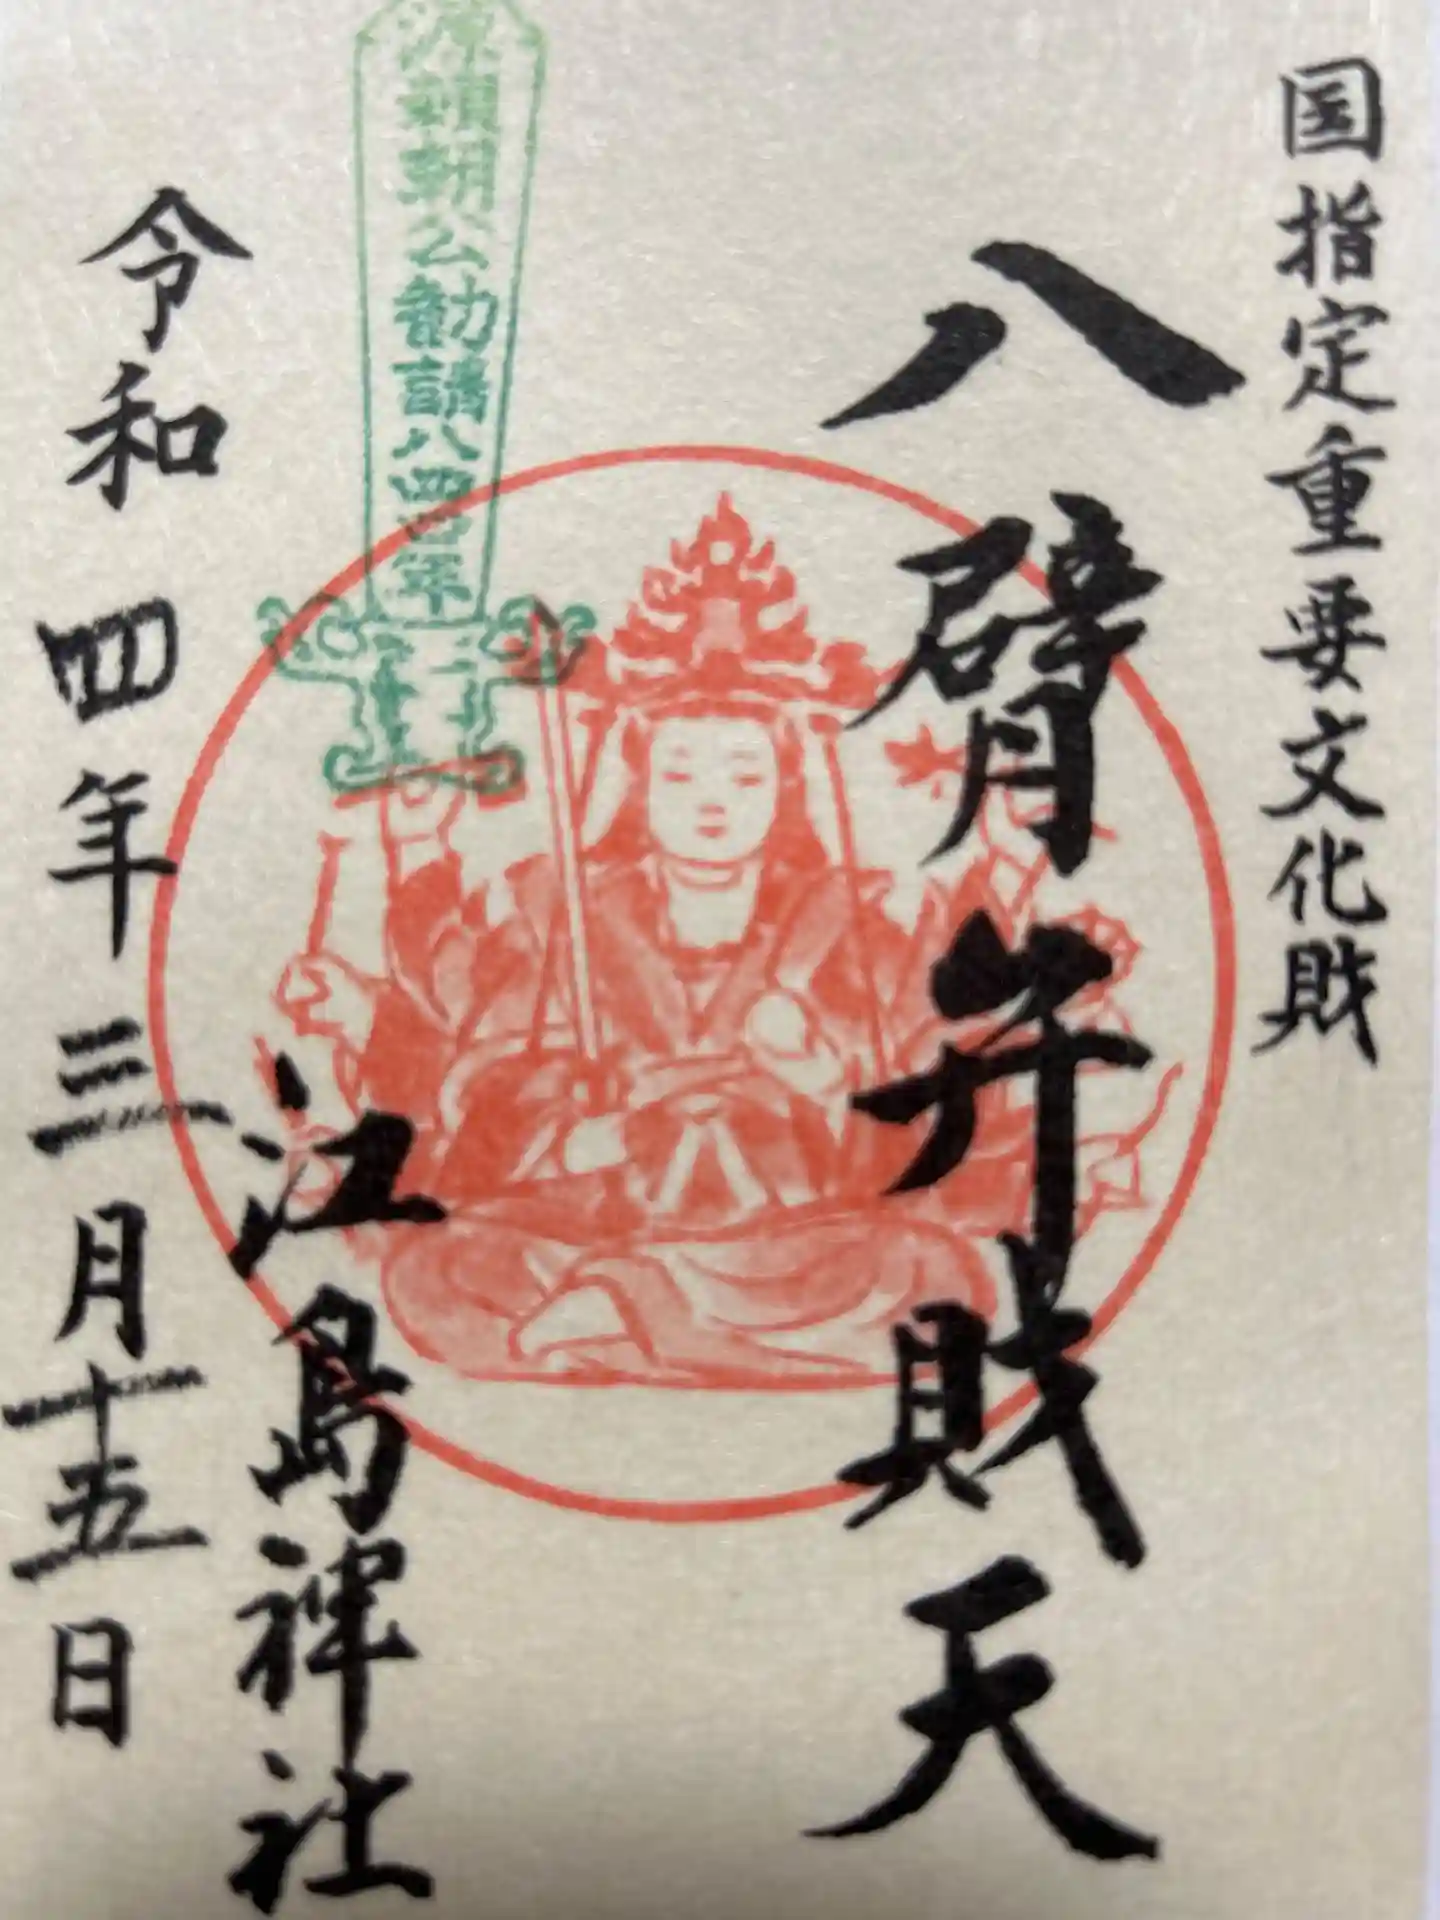 国指定重要文化財
八臂弁財天
源頼朝公勧請八四〇年
江島神社
令和四年三月十五日